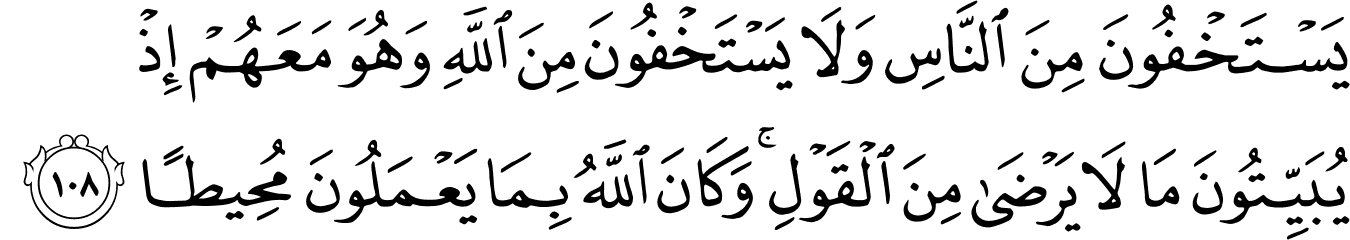 يَسْتَخْفُونَ مِنَ ٱلنَّاسِ وَلَا يَسْتَخْفُونَ مِنَ ٱللَّهِ وَهُوَ مَعَهُمْ إِذْ
يُبَيِّتُونَ مَا لَا يَرْضَىٰ مِنَ ٱلْقَوْلِ ۚ وَكَانَ ٱللَّهُ بِمَا يَعْمَلُونَ مُحِيطًا ١٠٨